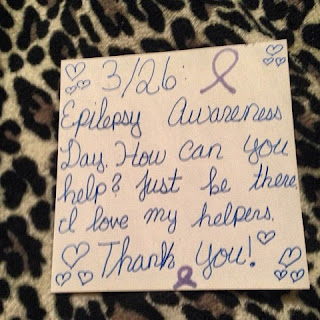 3/26:
Epilepsy Awareness
Day. How can you
help? Just be there.
I love my helpers.
Thank You!